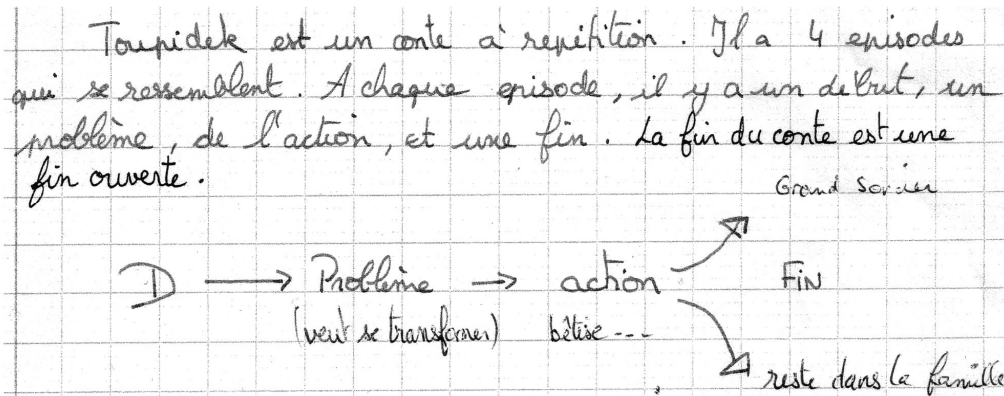 Toupidek est un conte à repitition. Il a 4 episodes
qui se ressemblent. A chaque episode, il y a un debut, un
problème, de l'action, et une fin. La fin du conte est une
fin ouverte.
Grand Sorcier
D → Problème → action FiN
(veut se transformer) bêtise ---
reste dans la famille